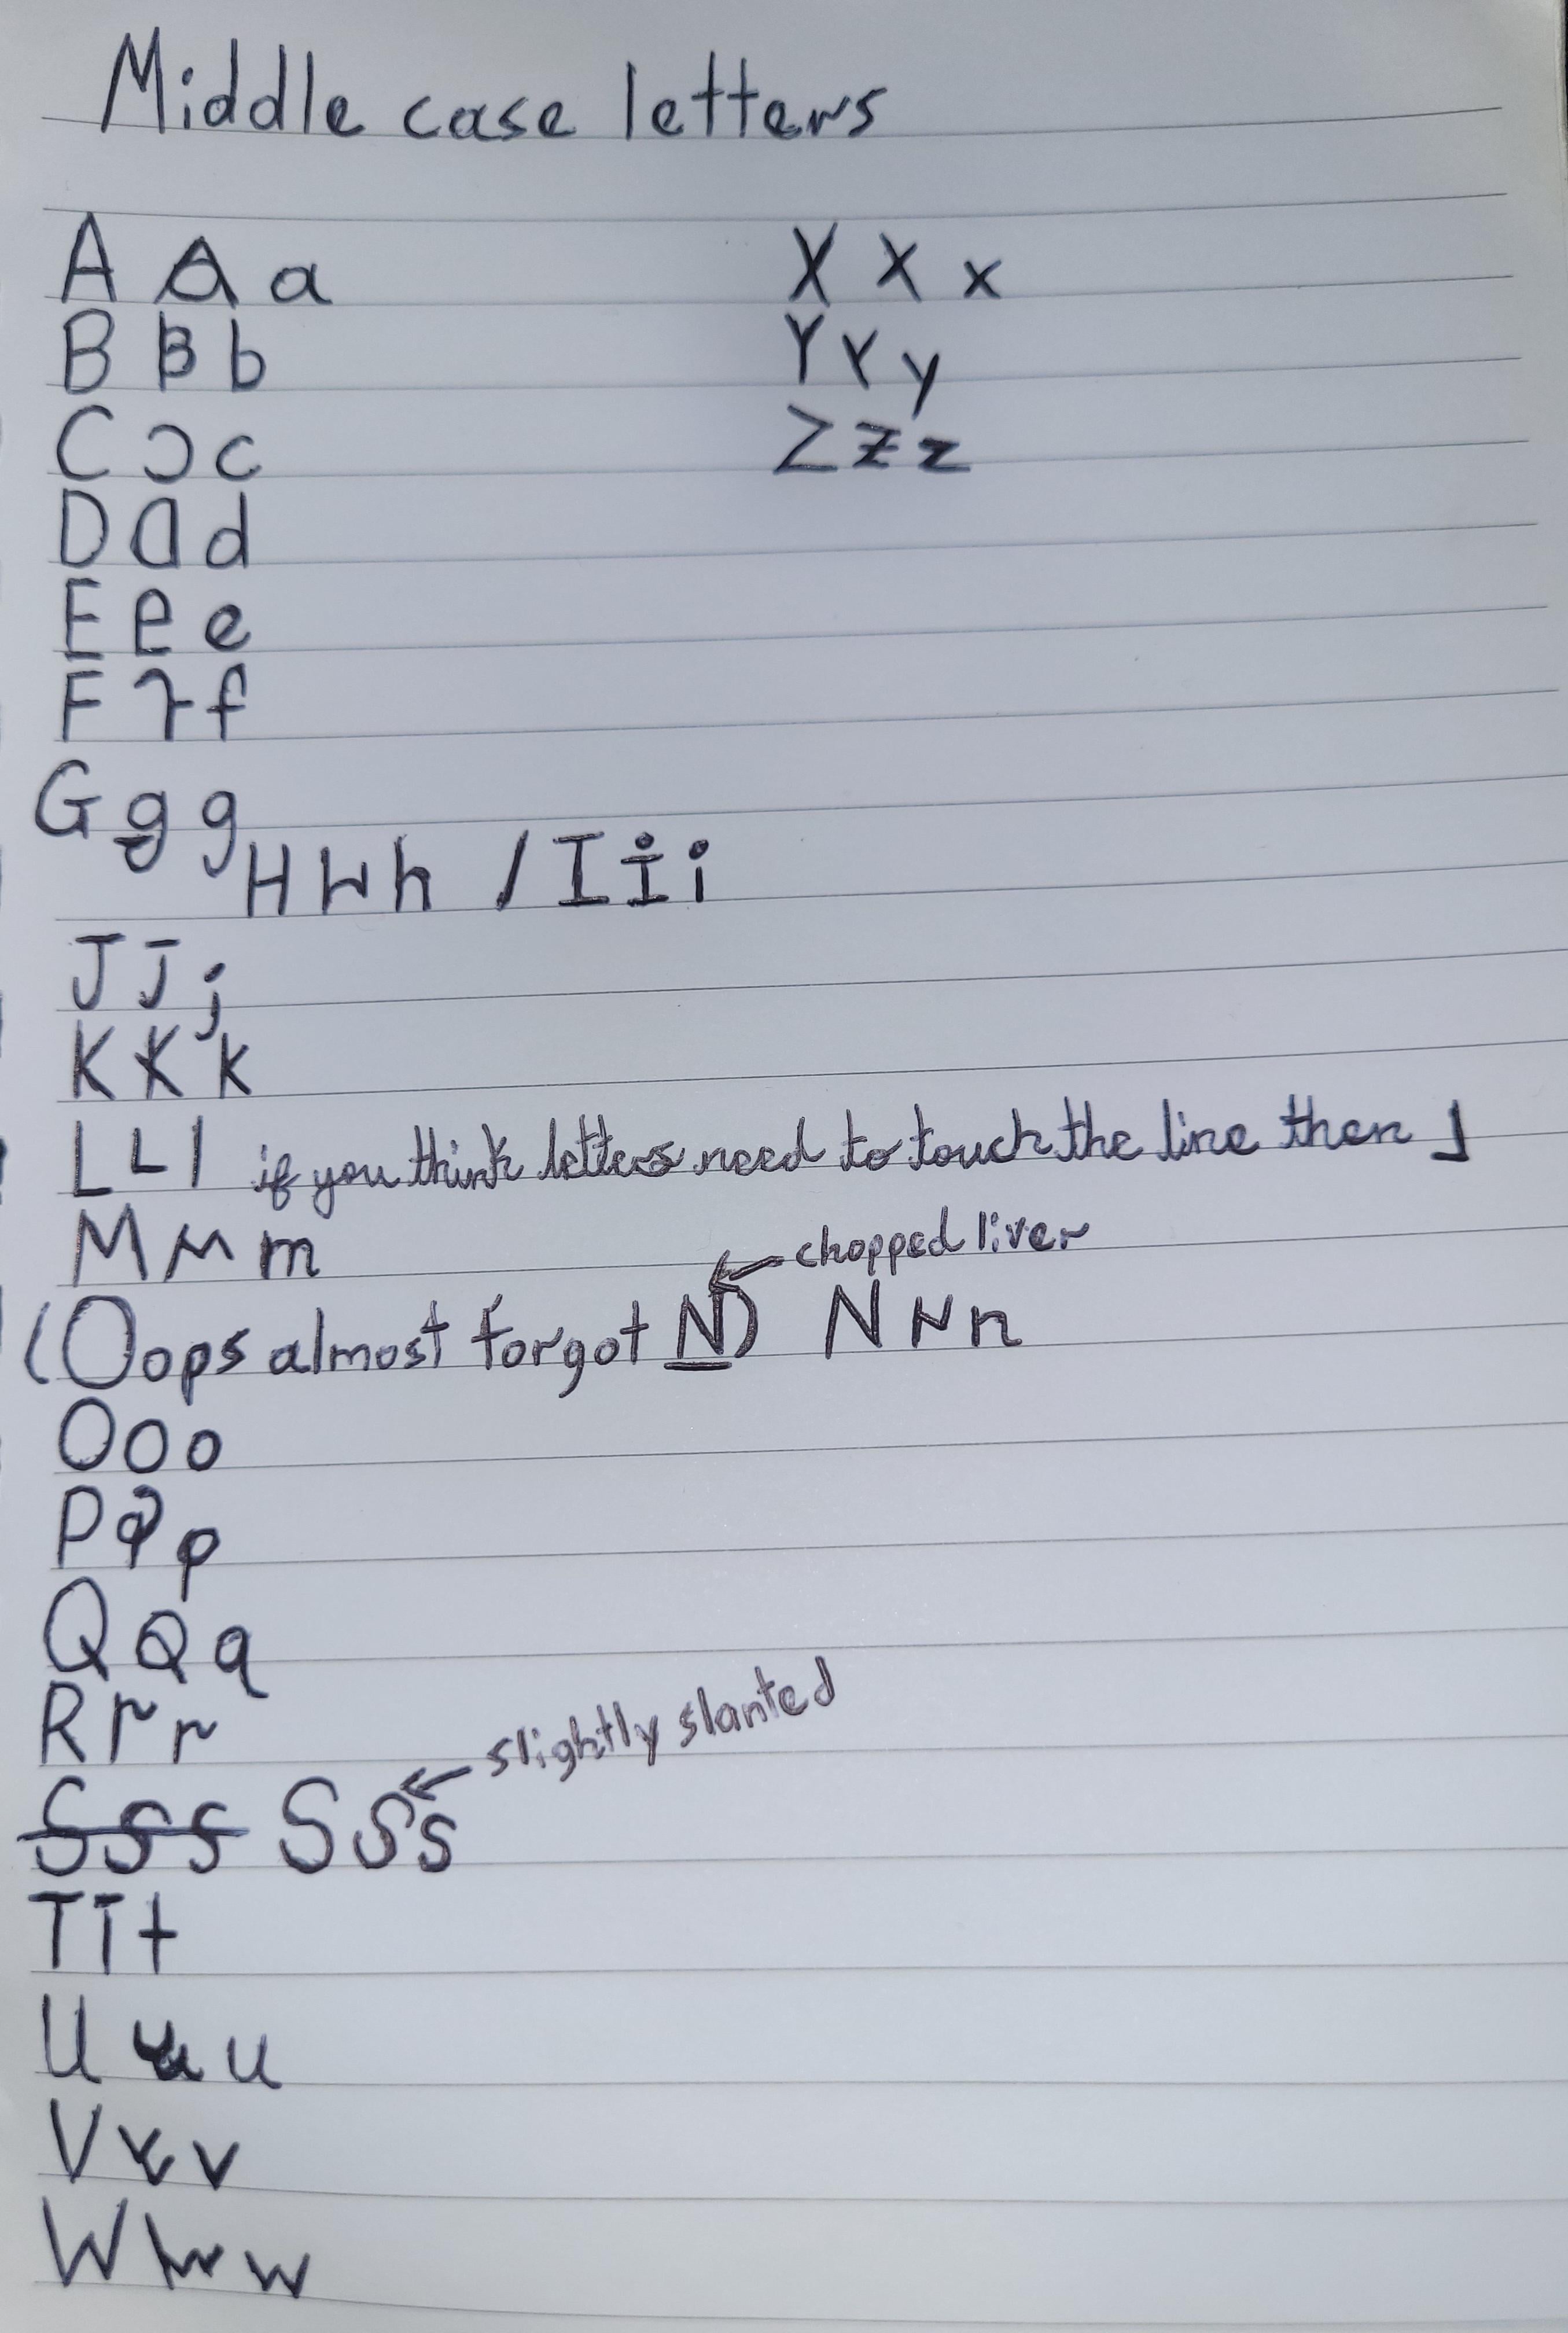 Middle case letters
A A a
B B b
C Ɔ c
D D d
E e e
F f f
G g g
H H h / I i i
J J j
K K k
L L l if you think letters need to touch the line then ⅃
M M m
chopped liver
(Oops almost forgot N) N N n
O o o
P P p
Q Q q
R r r
slightly slanted
S S S S S s
T T t
U u u
V v v
W w w
X X x
Y Y y
Z Z z